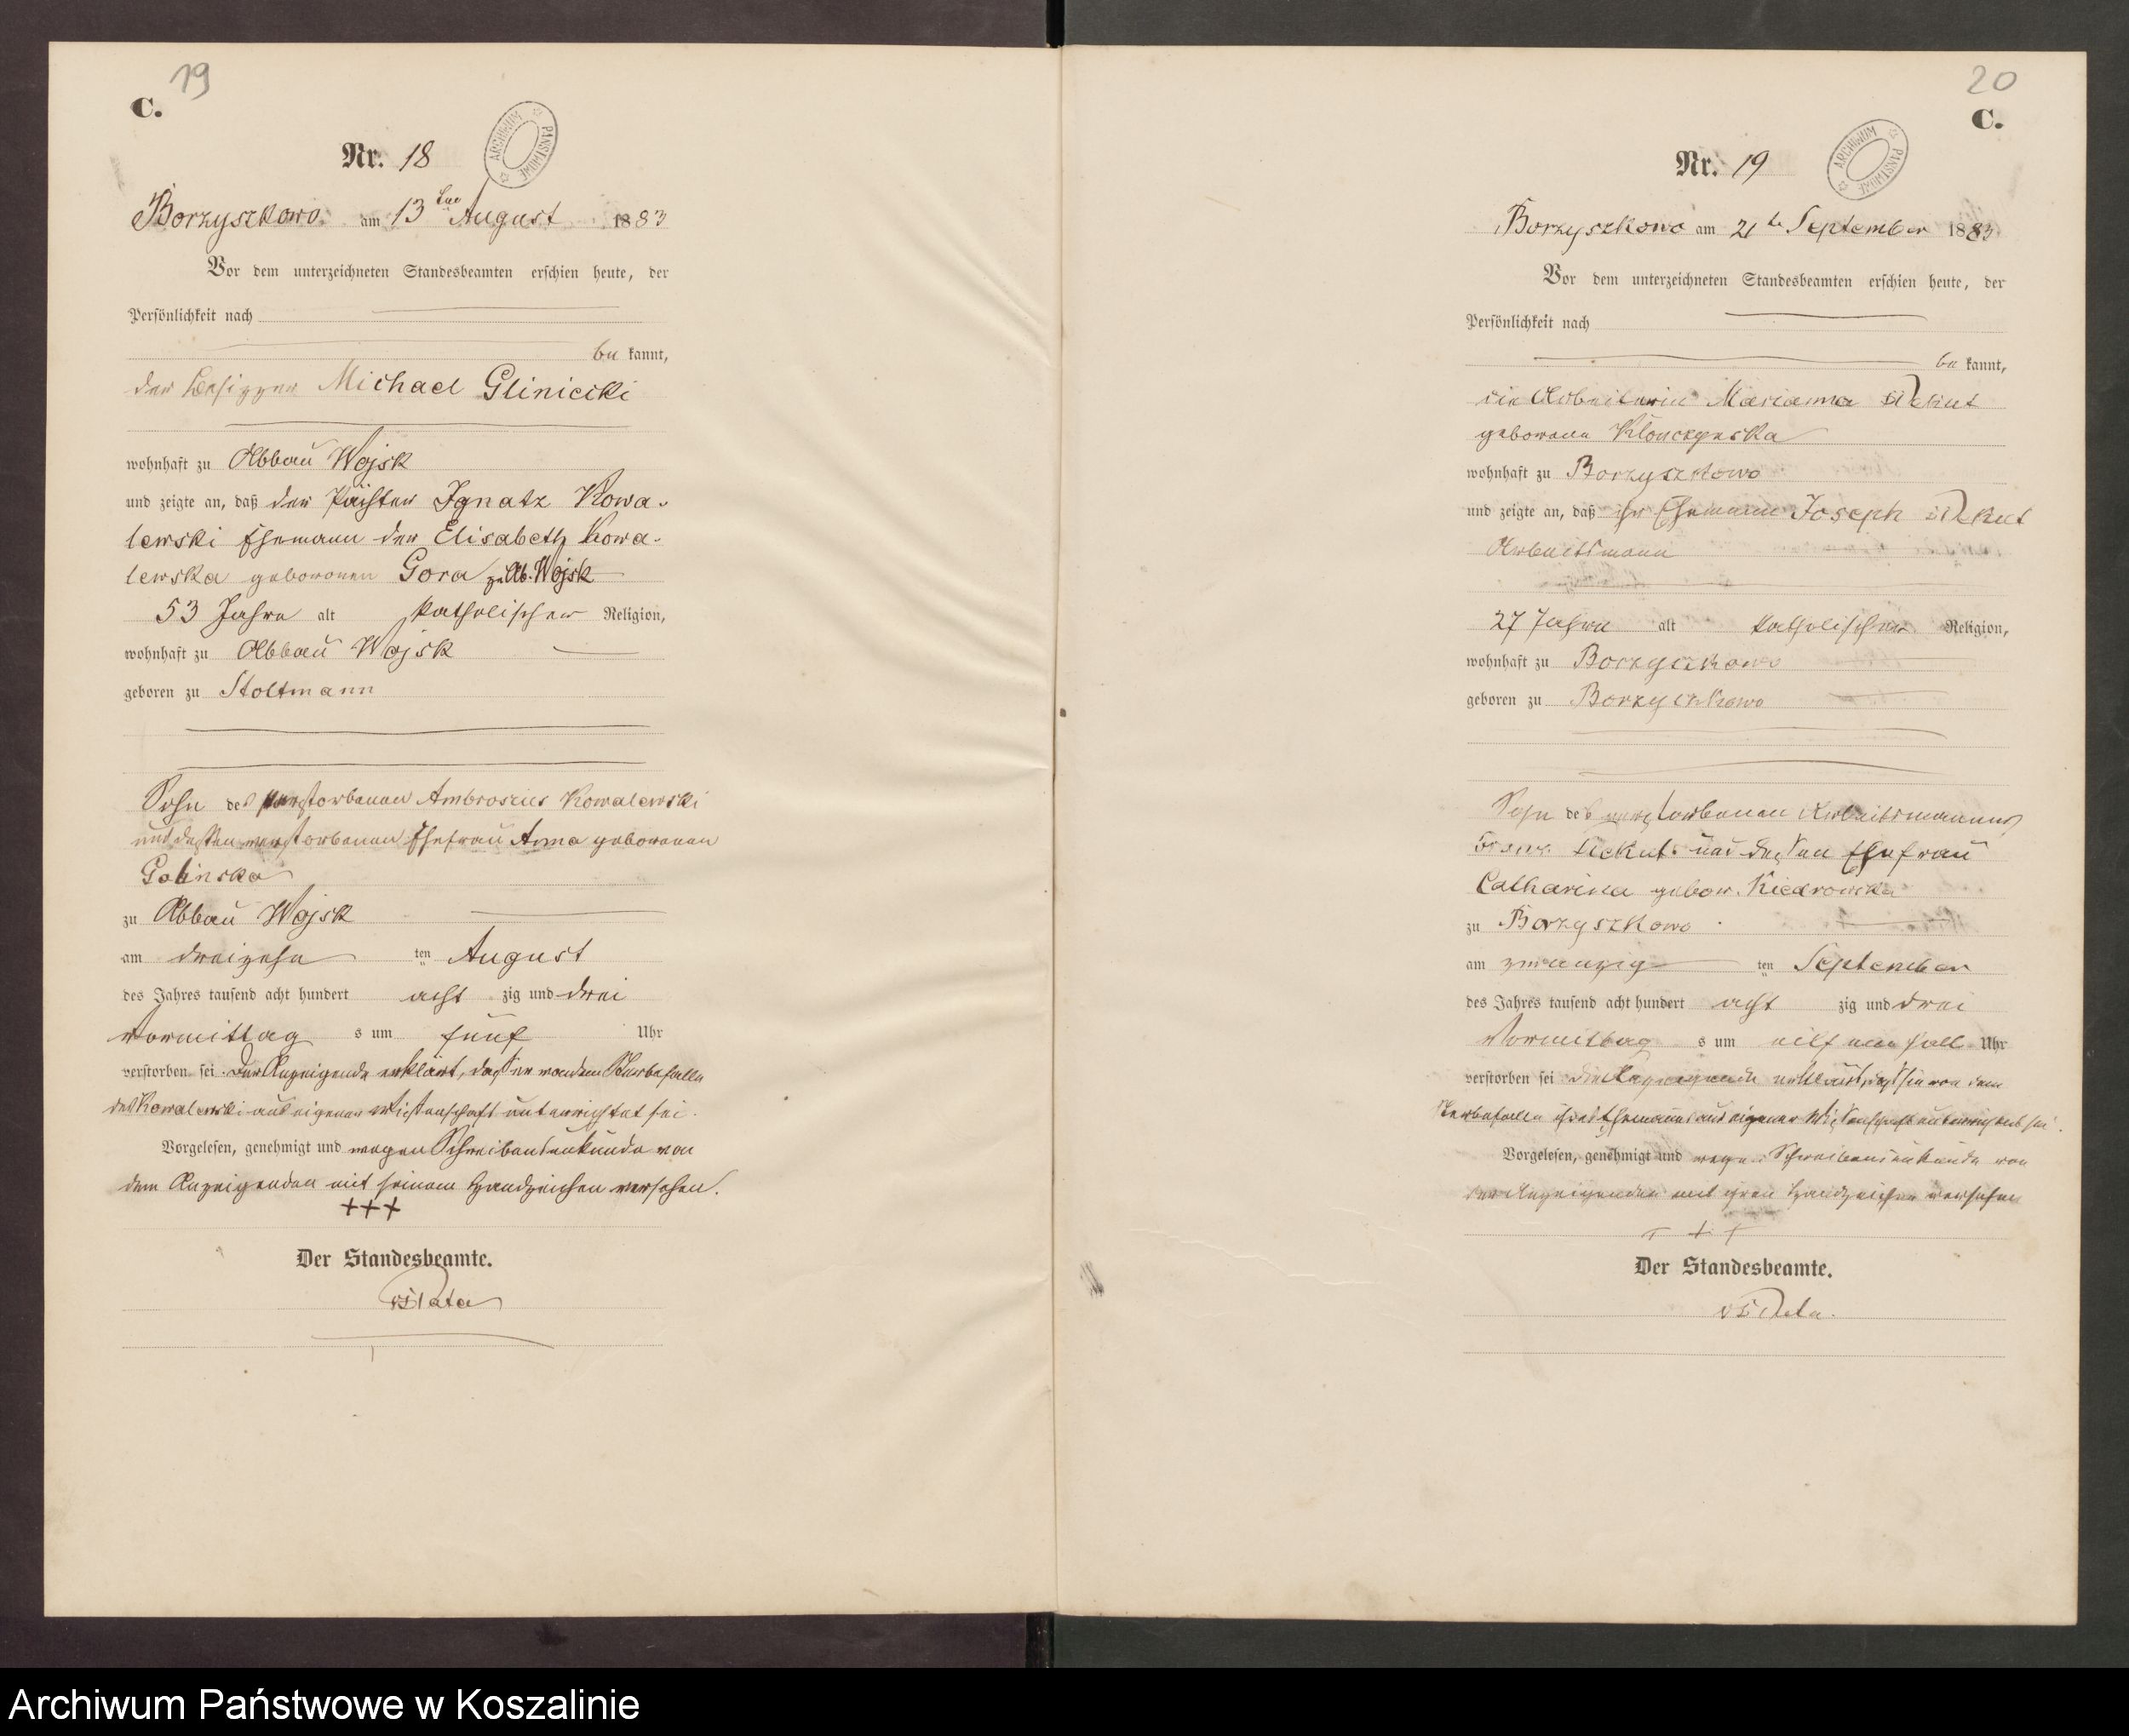 19
C.
ARCHIWUM PAŃSTWOWE
Nr. 18
Borzyszkowo am 13ten August 1883
Vor dem unterzeichneten Standesbeamten erschien heute, der
Persönlichkeit nach
be kannt,
der Besitzer Michael Gliniecki
wohnhaft zu Abbau Wojsk
und zeigte an, daß der Ignatz Kowa-
lewski Ehemann der Elisabeth Kowa-
lewska geborenen Gora zu Ab. Wojsk
53 Jahre alt katholischer Religion,
wohnhaft zu Abbau Wojsk
geboren zu Stoltmann
Sohn des verstorbenen Ambrosius Kowalewski
und dessen verstorbenen Ehefrau Anna geborenen
Golinska
zu Abbau Wojsk
am dreizehn ten August
des Jahres tausend acht hundert acht zig und drei
Vormittag s um fünf Uhr
verstorben sei. Der Anzeigende erklärt, daß er von dem Sterbefalle
des Kowalewski aus eigener Wissenschaft unterrichtet sei.
Vorgelesen, genehmigt und wegen Schreibensunkunde von
dem Anzeigenden mit seinem Handzeichen versehen.
+++
Der Standesbeamte.
20
C.
ARCHIWUM PAŃSTWOWE
Nr. 19
Borzyszkowo am 21te September 1883.
Vor dem unterzeichneten Standesbeamten erschien heute, der
Persönlichkeit nach
be kannt,
die Arbeiterin Marianna
geborene
wohnhaft zu Borzyszkowo
und zeigte an, daß ihr Ehemann Joseph
Arbeitsmann
27 Jahre alt katholischer Religion,
wohnhaft zu Borzyszkowo
geboren zu Borzyszkowo
Sohn des verstorbenen Arbeitsmannes
und dessen Ehefrau
Catharina gebor. Kiedrowska
zu Borzyszkowo
am zwanzig ten September
des Jahres tausend acht hundert acht zig und drei
Vormittag s um eilf ein halb Uhr
verstorben sei. Die Anzeigende erklärt, daß sie von dem
Sterbefalle ihres Ehemannes aus eigener Wissenschaft unterrichtet sei.
Vorgelesen, genehmigt und wegen Schreibensunkunde von
der Anzeigenden mit ihren Handzeichen versehen
+ + +
Der Standesbeamte.
Archiwum Państwowe w Koszalinie